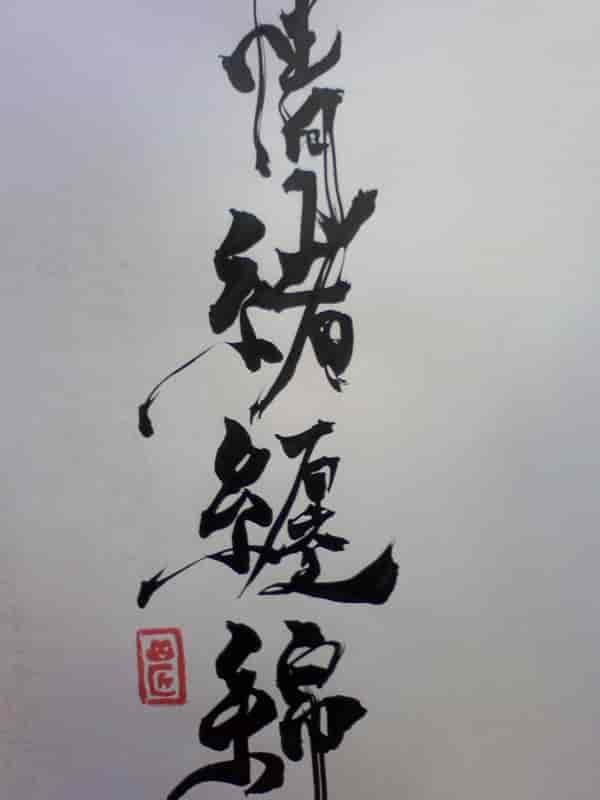 情緒纏綿